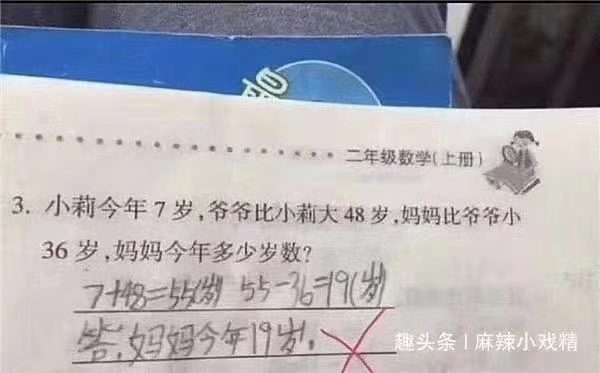 二年级数学(上册)
3. 小莉今年7岁,爷爷比小莉大48岁,妈妈比爷爷小
36岁,妈妈今年多少岁数?
7+48=55(岁) 55-36=19(岁)
答:妈妈今年19岁。
趣头条 | 麻辣小戏精